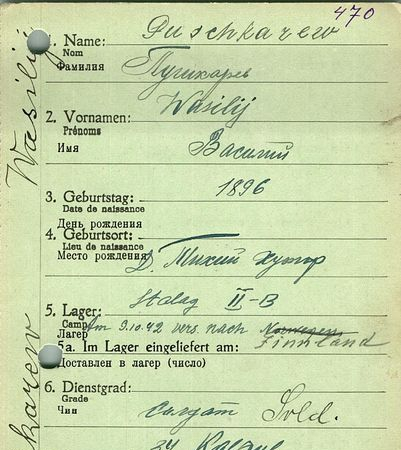 470
Puschkarew
1. Name:
Nom
Фамилия
Пушкарев
Wasilij
2. Vornamen:
Prénoms
Имя
Василий
1896
3. Geburtstag:
Date de naissance
День рождения
4. Geburtsort:
Lieu de naissance
Место рождения
Д. Тихий хутор
Stalag II-B
5. Lager:
Camp
Лагер
Am 9.10.42 vers. nach Norwegen
Finnland
5a. Im Lager eingeliefert am:
Доставлен в лагер (число)
6. Dienstgrad:
Grade
Чин
Солдат Sold.
34
Wasilij
karew